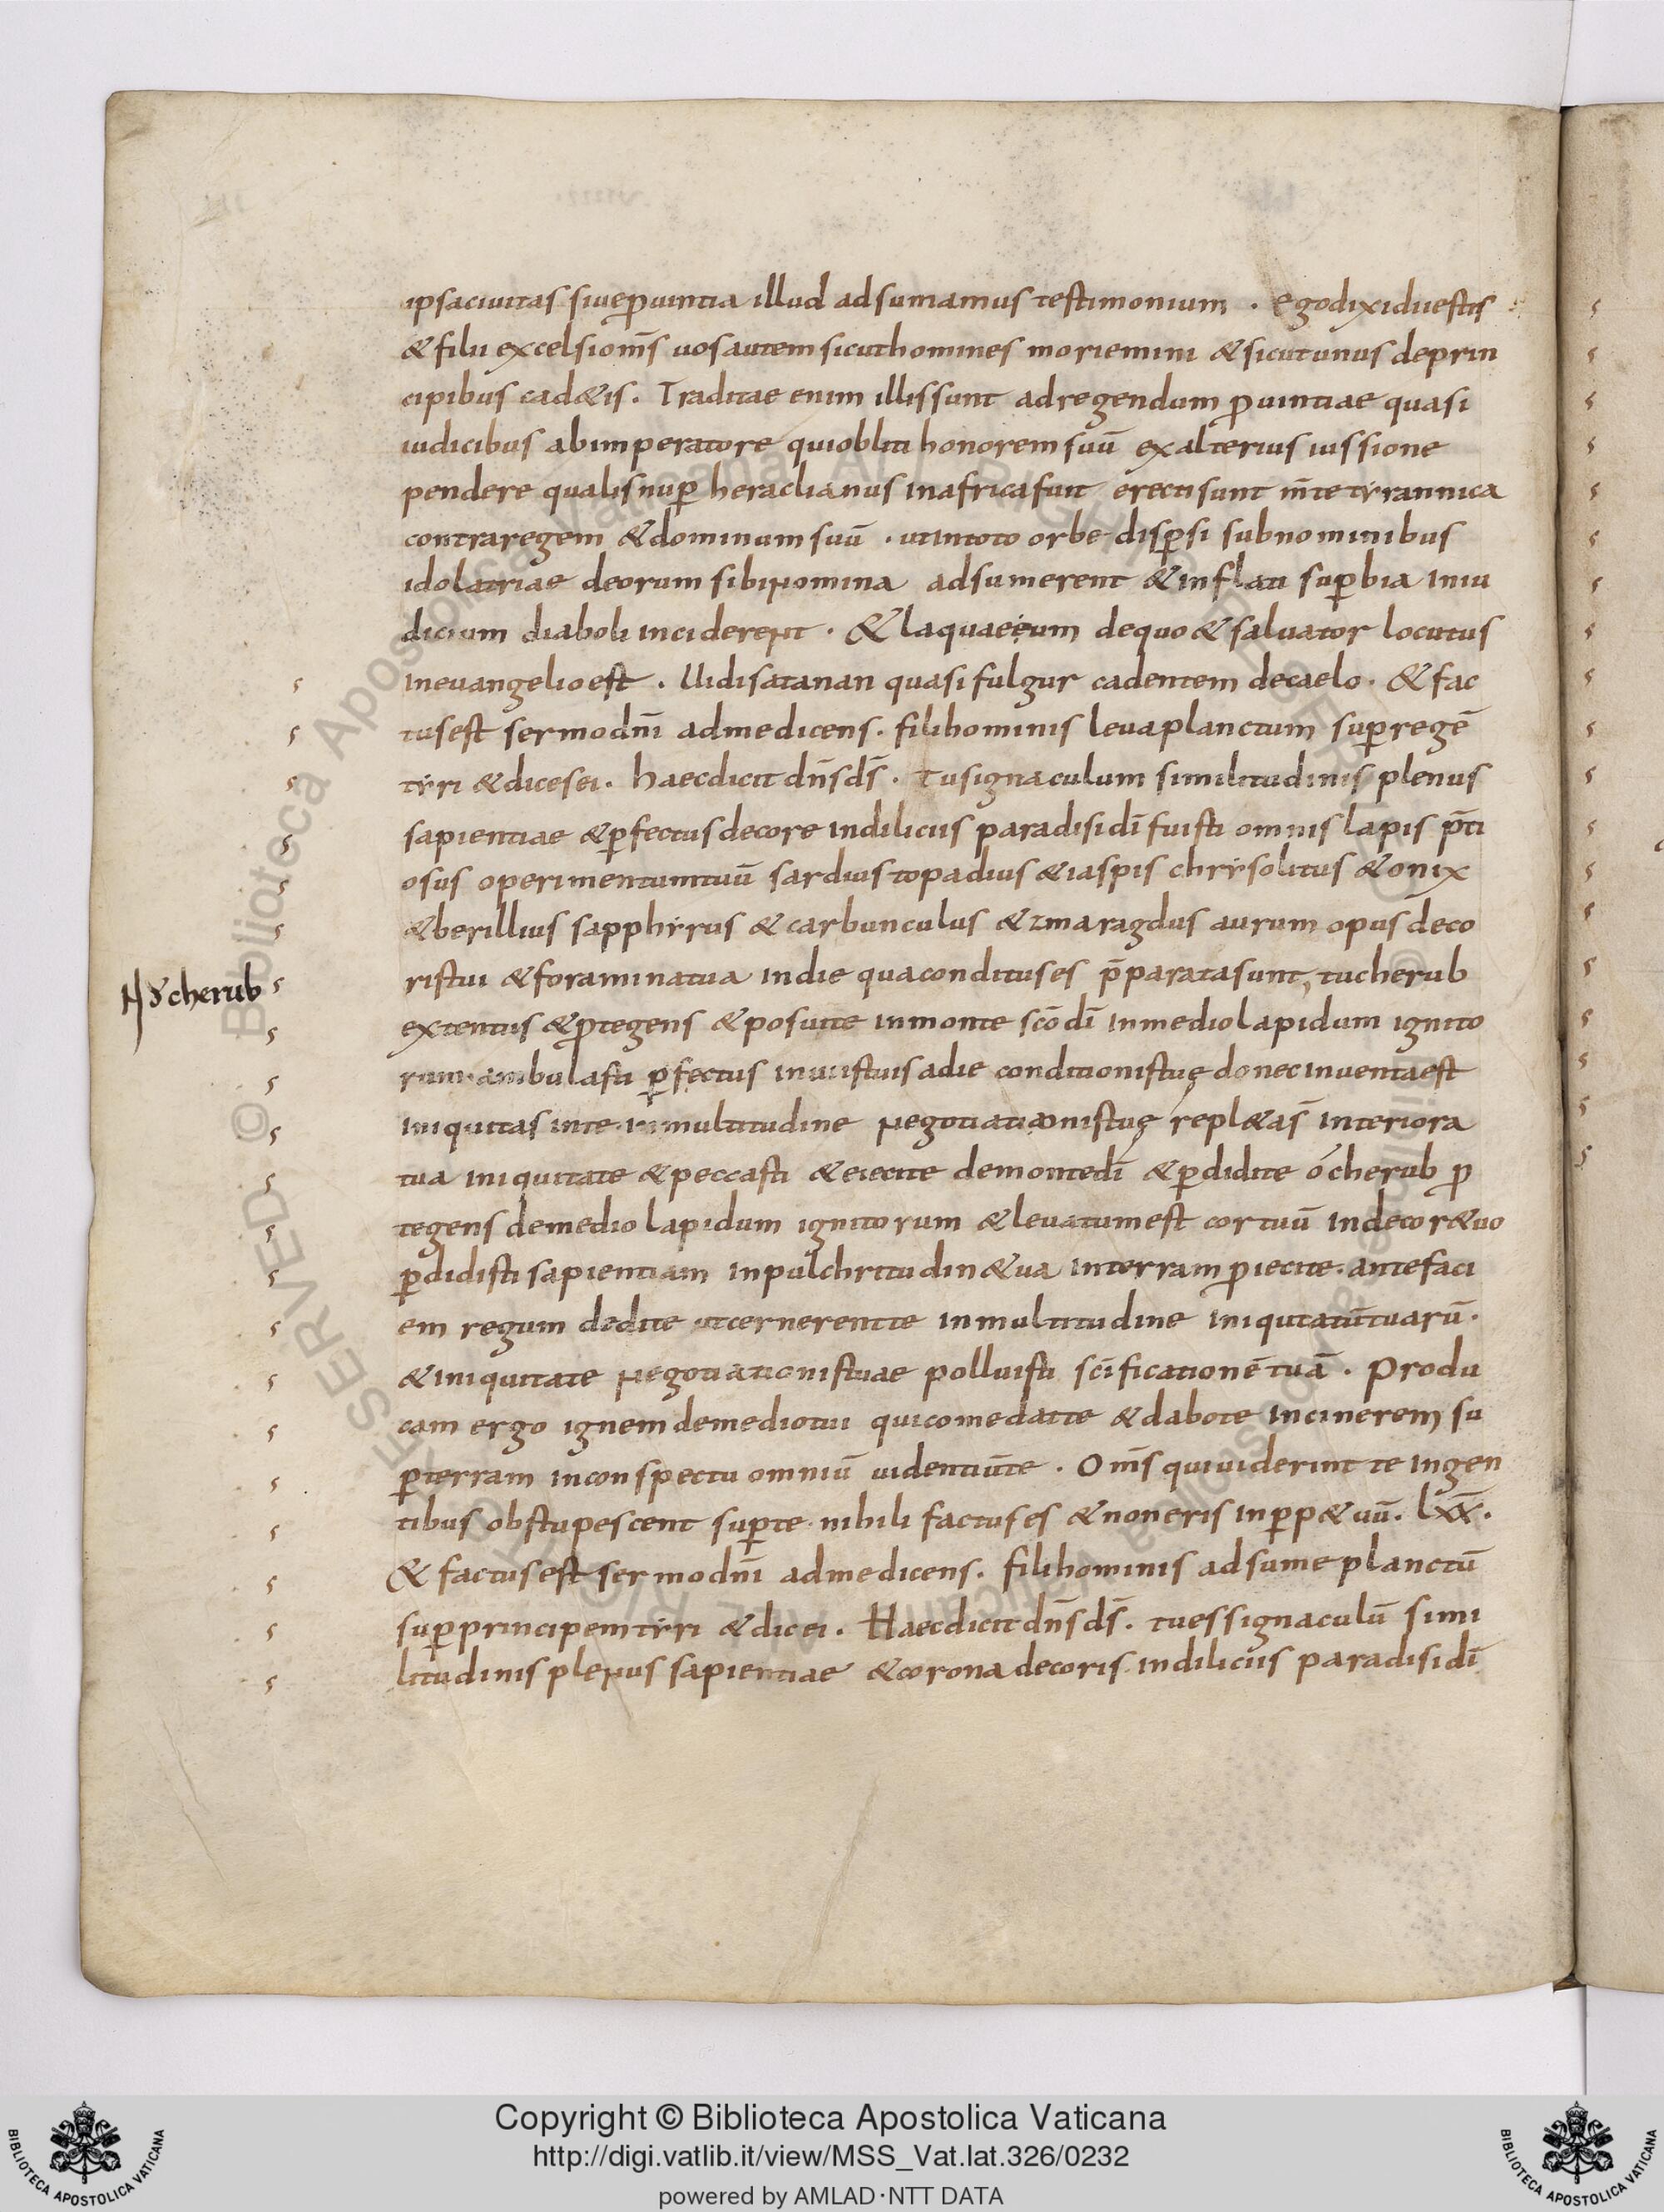 ipsaciuitas siueꝓuintia illud adsumamus testimonium . egodixidiiestis
& filii excelsiom̄s uos autem sicuthomines moriemini & sicutunus deprin
cipibus cad&is. Traditae enim illissunt adregendum ꝓuintiae quasi
iudicibus abimperatore quiobliti honorem suū ex alterius iussione
pendere qualisnuꝑ heraclianus inafricafuit erectisunt m̄te tyrannica
contraregem &dominum suū . utintoto orbe disꝑsi subnominibus
idolatriae deorum sibinomina adsumerent &inflati suꝑbia iniu
dicium diaboli inciderent . & laquaeeum dequo & saluator locutus
ineuangelioest . Uidisatanan quasi fulgur cadentem decaelo . & fac
tusest sermodn̄i admedicens . filihominis leuaplanctum suꝑregē
tyri &dicesei . haecdicit dn̄sds̄ . Tusignaculum similitudinis plenus
sapientiae &ꝑfectusdecore indiliciis paradisidī fuisti omnis lapis p̄ti
osus operimentumtuū sardius topadius &iaspis chrysolitus &onix
&berillius sapphyrus & carbunculus &zmaragdus aurum opus deco
ristui &foraminatua indie quaconditus es p̄paratasunt, tucherub
N ɣ cherub
extentus &ꝓtegens &posuite inmonte scōdī inmediolapidum ignito
rum ambulasti ꝑfectus inuiistuis adie conditionistuę donecinuentaest
iniquitas inte inmultitudine negotiationistuę repl&as̄ interiora
tua iniquitate &peccasti &eiecite demontedī &ꝑdidite ó cherub ꝓ
tegens demedio lapidum ignitorum &leuatumest cortuū indecor&uo
ꝑdidisti sapientiam inpulchritudin&ua interram ꝓiecite . antefaci
em regum dedite utcernerentte inmultitudine iniquitatūtuarū .
& iniquitate negotiationistuae polluisti sc̄ificationē tuā . Produ
cam ergo ignem demediotui quicomedatte &dabote incinerem su
ꝑterram inconspectu omniū uidentiūte . Om̄s quiuiderint te ingen
tibus obstupescent suꝑte . nihili factus es &noneris inꝑp&uū . lxx̄ .
& factusest sermodn̄i admedicens . filihominis adsume planctū
suꝑprincipemtyri &dicei . Haecdicit dn̄sds̄ . tuessignaculū simi
litudinis plenus sapientiae &corona decoris indiliciis paradisidī
Copyright © Biblioteca Apostolica Vaticana
http://digi.vatlib.it/view/MSS_Vat.lat.326/0232
powered by AMLAD·NTT DATA
BIBLIOTECA APOSTOLICA VATICANA
BIBLIOTECA APOSTOLICA VATICANA